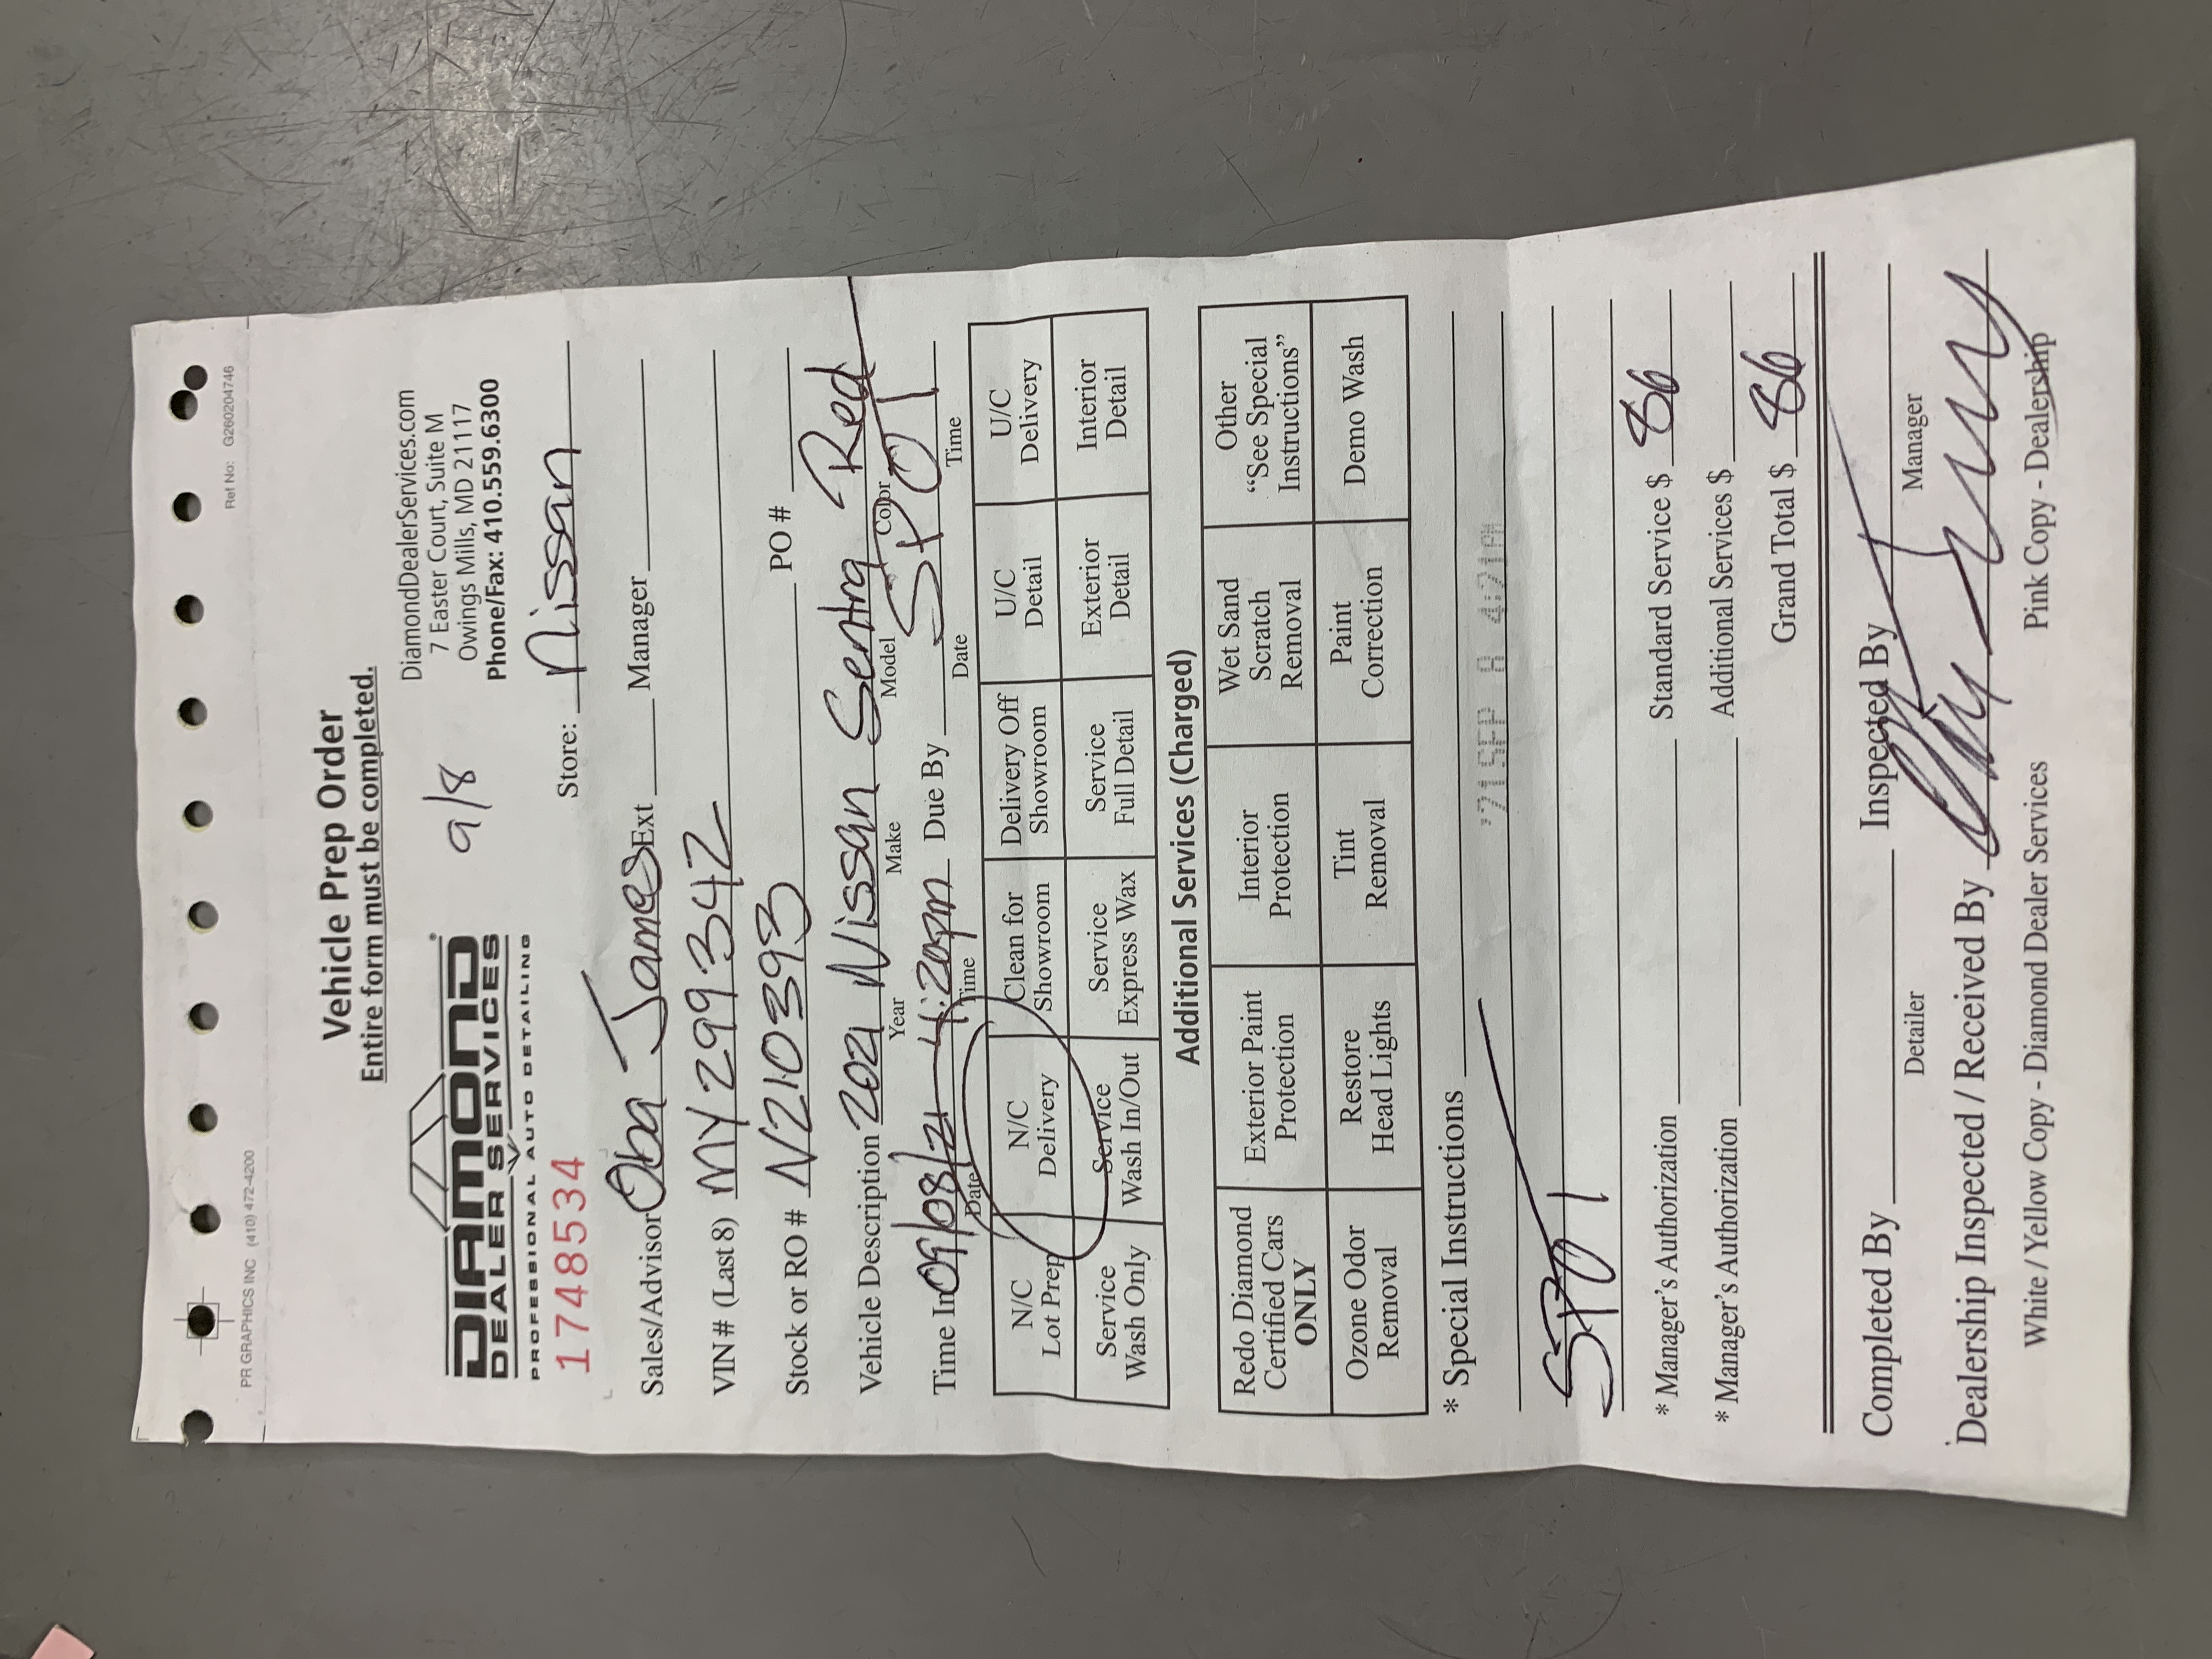 PR GRAPHICS INC (410) 472-4200
Ref No: G260204746
Vehicle Prep Order
Entire form must be completed.
DIAMOND
DEALER SERVICES
PROFESSIONAL AUTO DETAILING
9/8
DiamondDealerServices.com
7 Easter Court, Suite M
Owings Mills, MD 21117
Phone/Fax: 410.559.6300
1748534
Store: Nissan
Sales/Advisor Oba James Ext Manager
VIN # (Last 8) MY299342
Stock or RO # N210393 PO #
Vehicle Description 2021 Nissan Sentra Red
Year Make Model Color
Time In 09/08/21 4:20pm Due By SPOT
Date Time Date Time
N/C Lot Prep N/C Delivery Clean for Showroom Delivery Off Showroom U/C Detail U/C Delivery
Service Wash Only Service Wash In/Out Service Express Wax Service Full Detail Exterior Detail Interior Detail
Additional Services (Charged)
Redo Diamond Certified Cars ONLY Exterior Paint Protection Interior Protection Wet Sand Scratch Removal Other "See Special Instructions"
Ozone Odor Removal Restore Head Lights Tint Removal Paint Correction Demo Wash
* Special Instructions
'21 SEP 8 4:21PM
SPOT
* Manager's Authorization Standard Service $ 86
* Manager's Authorization Additional Services $
Grand Total $ 86
Completed By Inspected By
Detailer Manager
Dealership Inspected / Received By
White / Yellow Copy - Diamond Dealer Services Pink Copy - Dealership